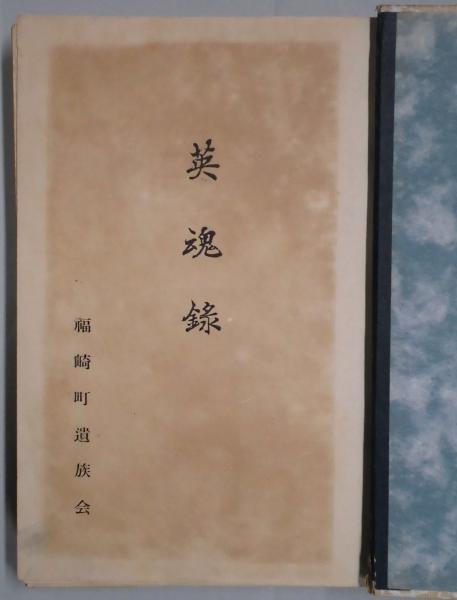 英魂錄
福崎町遺族会